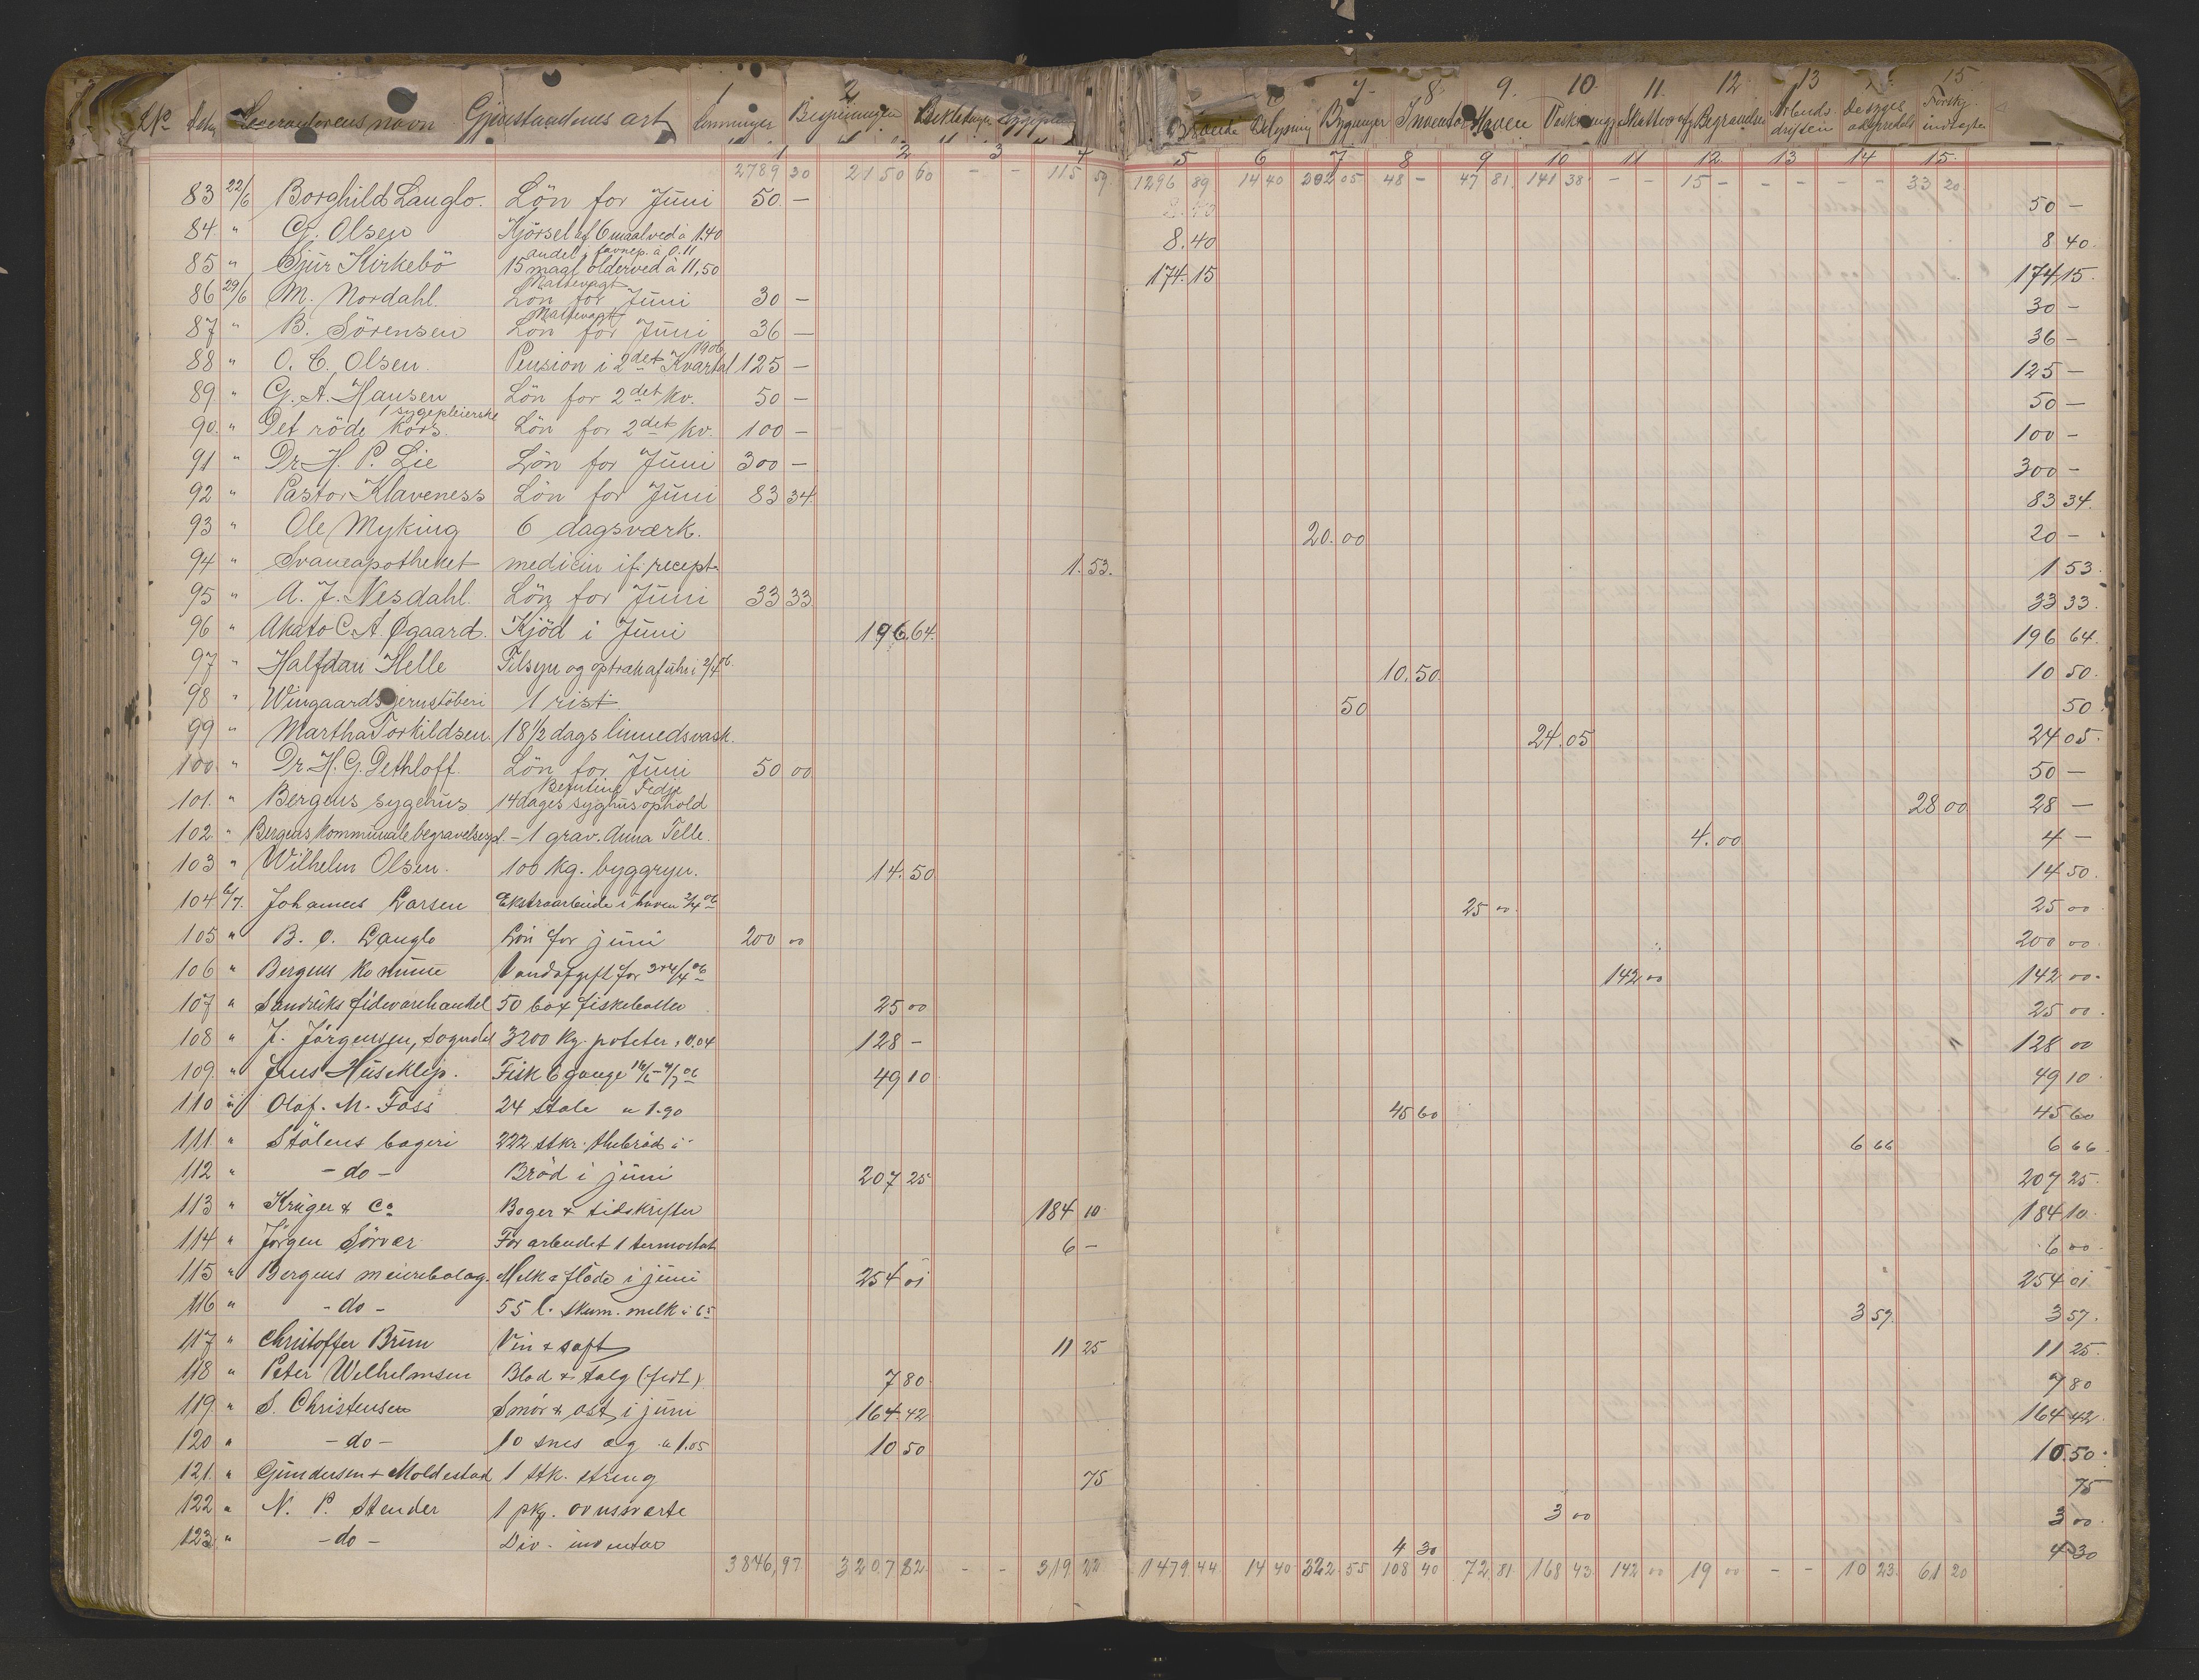 No Dato Leverandörens navn Gjenstandens art Lönninger Bespisningen Beklædningen Sygepleien Brænde Belysning Bygninger Inventar Haven Vask Skatter Begravelse Arbeidsdriften De syges adspredelse Forskj. indtægter
1 2 3 4 5 6 7 8 9 10 11 12 13 14 15
2789 30 2150 60 - - 115 59 1296 89 14 40 302 05 48 - 47 81 141 38 - - 15 - - - - - 33 20
83 22/6 Borghild Langlo. Lön for Juni 50 - 50 -
84 " G. Olsen Kjörsel af 6 maal ved à 1.40 8.40 8 40
85 " Sjur Kirkebö 15 maal olderved à 11,50 andel i favnep. à 0.11 174.15 174,15
86 29/6 M. Nordahl. Lön for Juni 30 - 30 -
87 " B. Sörensen Lön for Juni 36 - 36 -
88 " O. C. Olsen Pension i 2det Kvartal 1906 125 - 125 -
89 " G. A. Hansen Lön for 2det Kv. 50 - 50 -
90. " Det röde kors. 1 sygepleierske Lön for 2det Kv. 100 - 100 -
91 " Dr H. P. Lie Lön for Juni 300 - 300 -
92 " Pastor Klaveness Lön for Juni 83 34 83 34
93 " Ole Myking 6 dagsværk. 20.00 20 -
94 " Svaneapotheket medicin if. recept. 1.53. 1 53
95 " A. J. Nesdahl. Lön for Juni 33 33 33 33
96 " A kato C. A. Øgaard. Kjöd i Juni 196,64. 196 64
97 " Halfdan Helle Tilsyn og optræk af uhr i 2/4 06. 10.50 10 50
98 " Wingaards jernstöberi 1 rist 50 50
99 " Martha Torkildsen. 18 1/2 dags linnedsvask. 24.05 24 05
100. " Dr H. G. Dethloff. Lön for Juni 50 00 50 -
101. " Bergens sygehus 14 dages syghusophold Fedje 28 00 28 -
102. " Bergens kommunale begravelsespl. - 1 grav. Anna Telle. 4.00 4 -
103 " Wilhelm Olsen. 100 kg. byggryn. 14.50 14 50
104 6/7. Johannes Larsen Ekstraarbeide i haven 2/4 06 25 00 25 00
105 " B. O. Langlo Lön for juni 200 00 200 00
106 " Bergens komune Vandafgift for 3 & 4/4 06 142 00 142 00
107 " Sandviks fedevarehandel 50 box fiskeboller 25 00 25 00
108 " J. Jörgensen, Sogndal 3200 kg. poteter à 0.04 128 - 128 00
109. " Jens Huseklep. Fisk 6 gange 16/6 - 4/7 06 49 10 49 10
110 " Olaf. M. Foss 24 stole à 1.90 45 60 45 60
111. " Stölens bageri 222 stkr. thebröd à 6 66 6 66
112 " - do - Bröd i juni 207 25 207 25
113 " Krüger & Co Boger & tidskrifter 184 10 184 10
114 " Jörgen Sörver Forarbeidet 1 termostat 6 - 6 00
115 " Bergens meieribolag. Melk & flöde i juni 254 01 254 01
116 " - do - 55 l. skum. melk à 65 3 57 3 57
117 " Christoffer Brun Vin & saft 11 25 11 25
118 " Peter Wilhelmsen Blod & talg (fedt) 7 80 7 80
119. " S. Christensen Smör & ost i juni 164.42 164 42
120 " - do - 10 snes æg à 1.05 10 50 10.50
121. " Gundersen & Moldestad 1 stk. streng 75 75
122 " N. P. Stender 1 pkg. ovnssverte 3 00 3 00
123 " - do - Div. inventar 4 30 4 30
3846,97 3207 82 - - 319 22 1479 44 14 40 322 55 108 40 72 81 168 43 142 00 19 00 - - 10 23 61 20